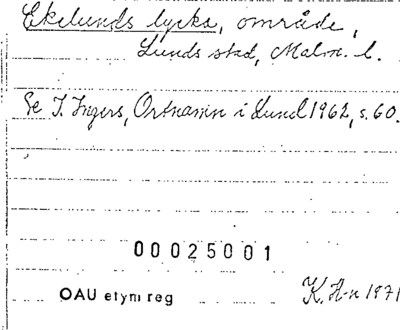 Ekelunds lycka, område,
Lunds stad, Malm. l.
Se I. Ingers, Ortnamn i Lund 1962, s. 60.
00025001
OAU etym reg
K. H-n 1971